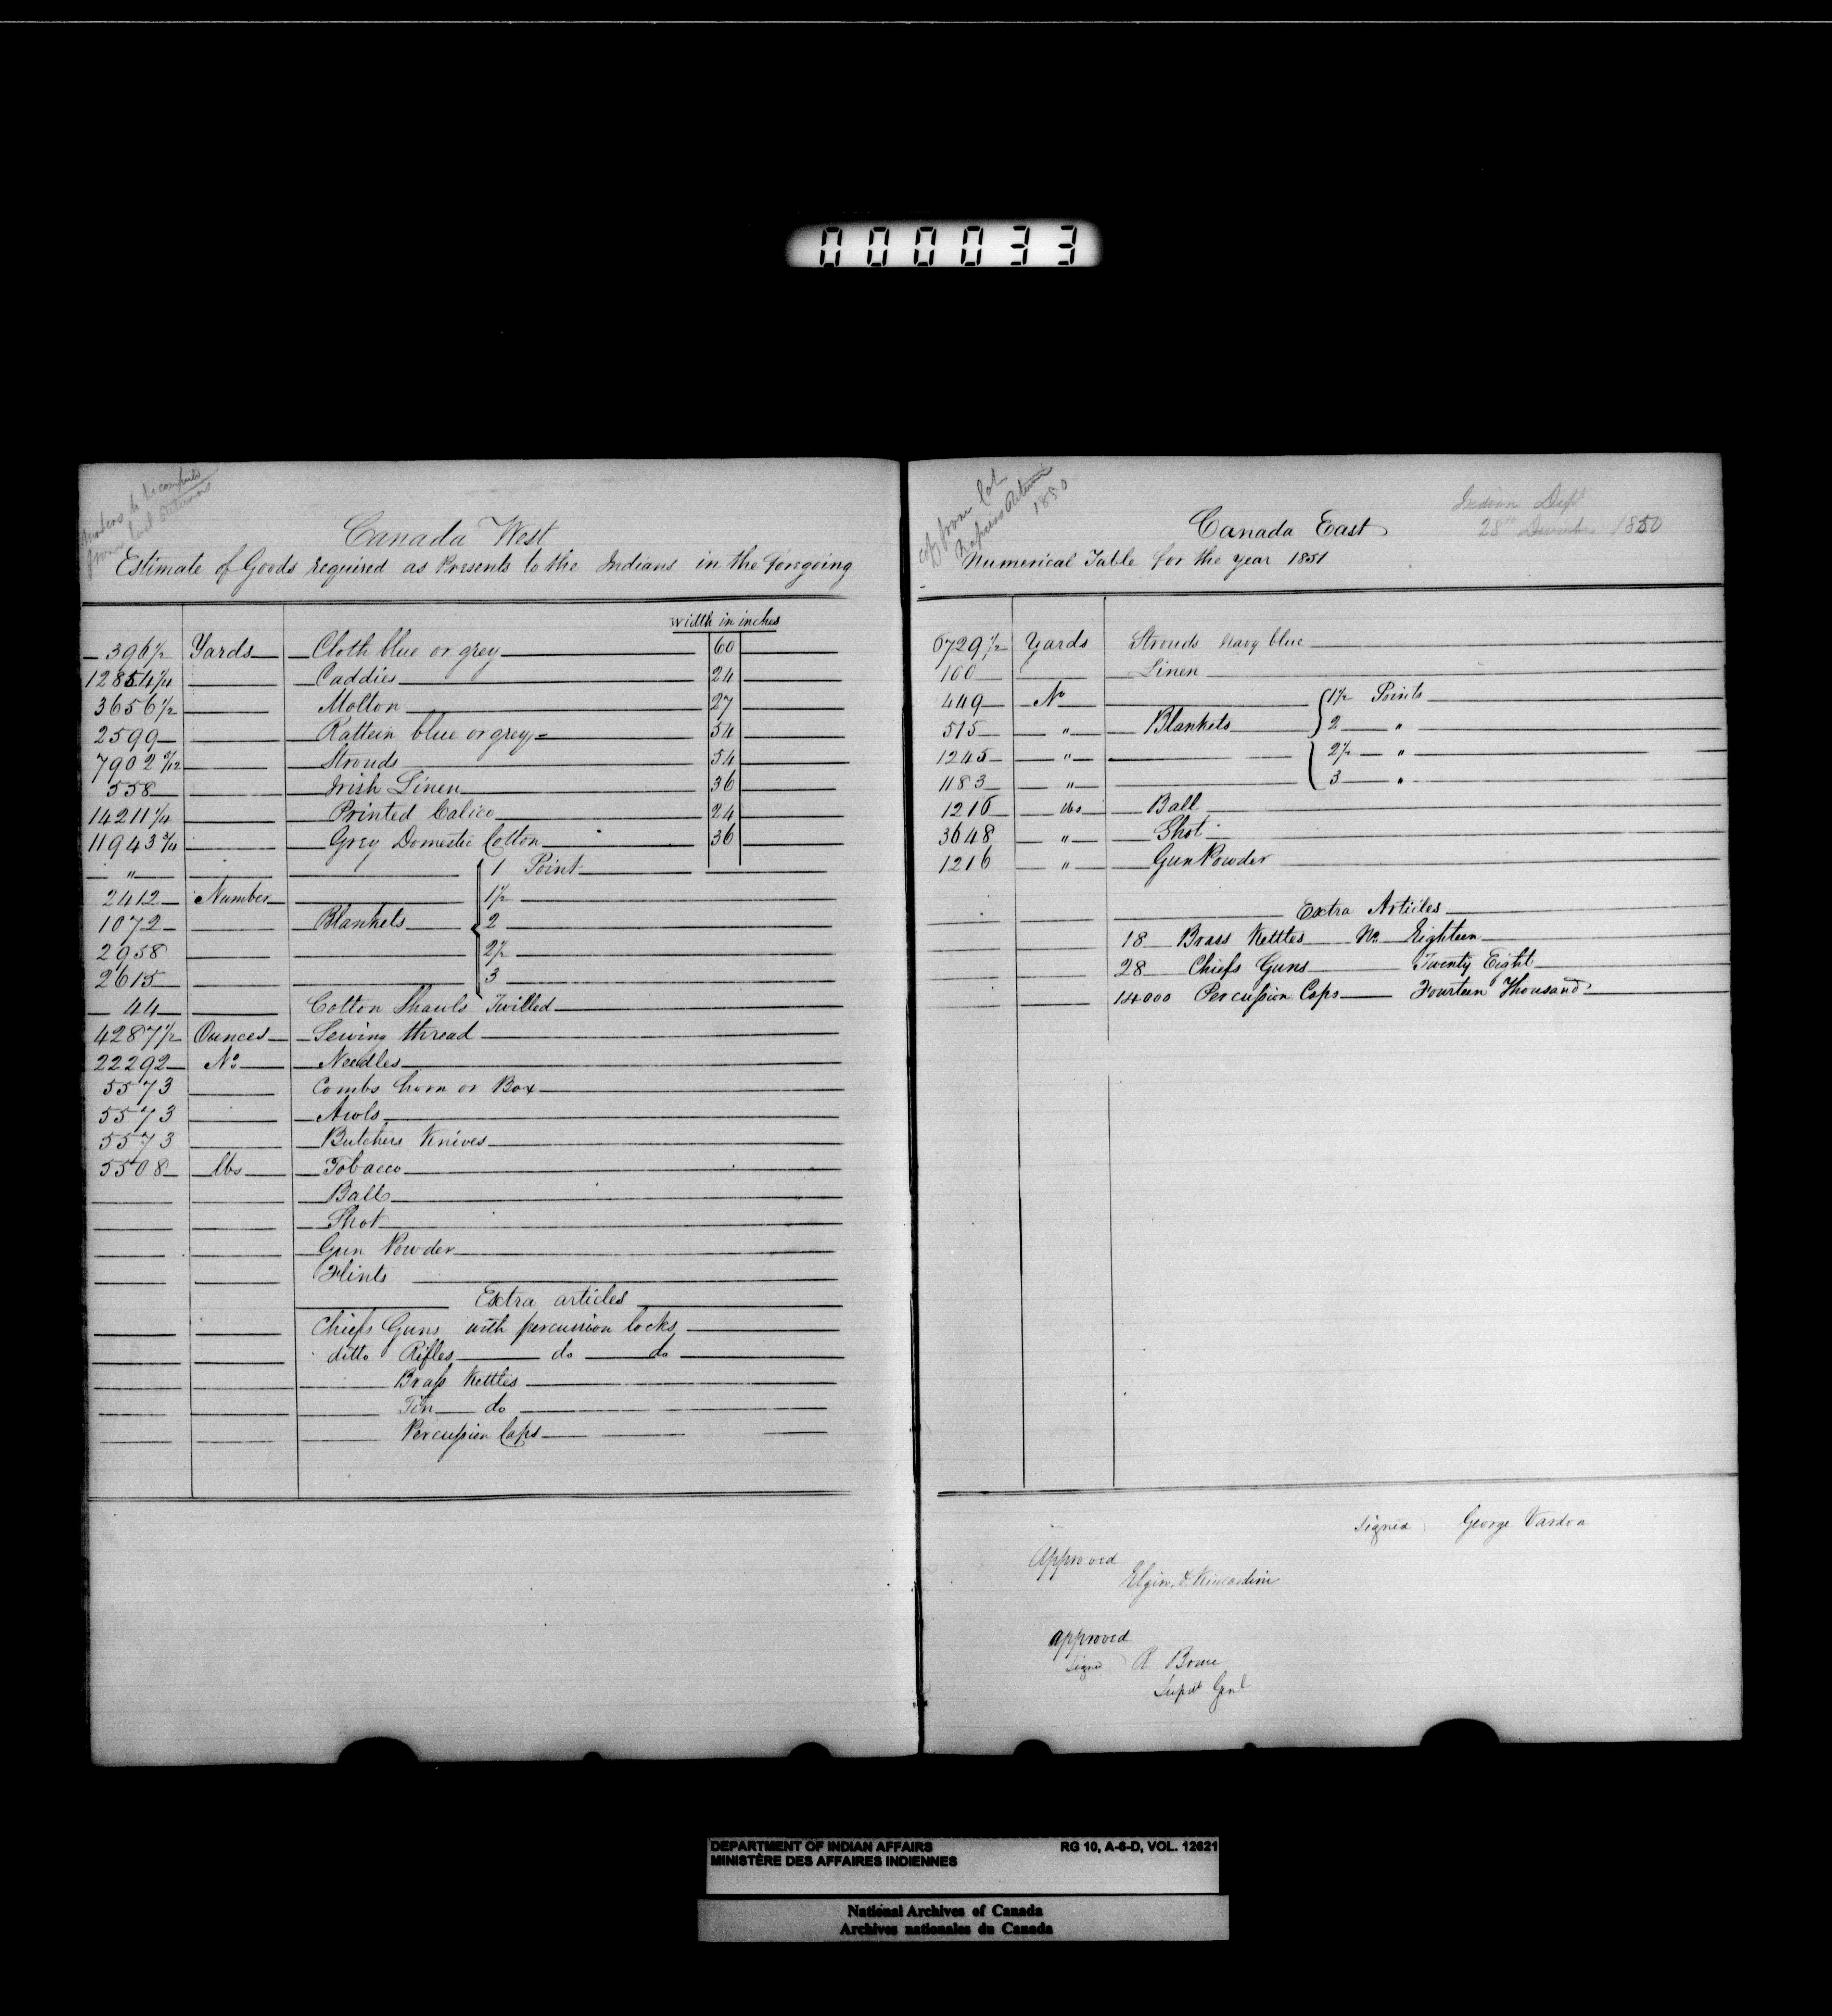 000033
Canada West
Estimate of Goods required as Presents to the Indians in the foregoing
width in inches
396½ Yards Cloth blue or grey 60
12854¼ Caddies 24
3656½ Molton 27
2599 Rattein blue or grey 54
7902 5/12 Strouds 54
558 Irish Linen 36
14211¼ Printed Calico 24
11943¾ Grey Domestic Cotton 36
" 1 Point
2412 Number 1½
1072 Blankets 2
2958 2½
2615 3
44 Cotton Shawls Twilled
4287½ Ounces Sewing thread
22292 No Needles
5573 Combs horn or Box
5573 Awls
5573 Butchers Knives
5508 lbs Tobacco
Ball
Shot
Gun Powder
Flints
Extra articles
Chiefs Guns with percussion locks
ditto Rifles do do
Brass Kettles
Tin do
Percussion Caps
1850
Indian Dept
28th 1850
Canada East
Numerical Table for the year 1851
6729½ Yards Strouds Navy blue
100 Linen
449 No 1½ Points
515 " Blankets 2 "
1245 " 2½ "
1183 " 3 "
1216 lbs Ball
3648 " Shot
1216 " Gun Powder
Extra Articles
18 Brass Kettles No Eighteen
28 Chiefs Guns Twenty Eight
14000 Percussion Caps Fourteen Thousand
Signed George Vardon
Approved
Elgin & Kincardine
approved
Signed R Bruce
Supdt Genl
DEPARTMENT OF INDIAN AFFAIRS RG 10, A-6-D, VOL. 12621
MINISTÈRE DES AFFAIRES INDIENNES
National Archives of Canada
Archives nationales du Canada